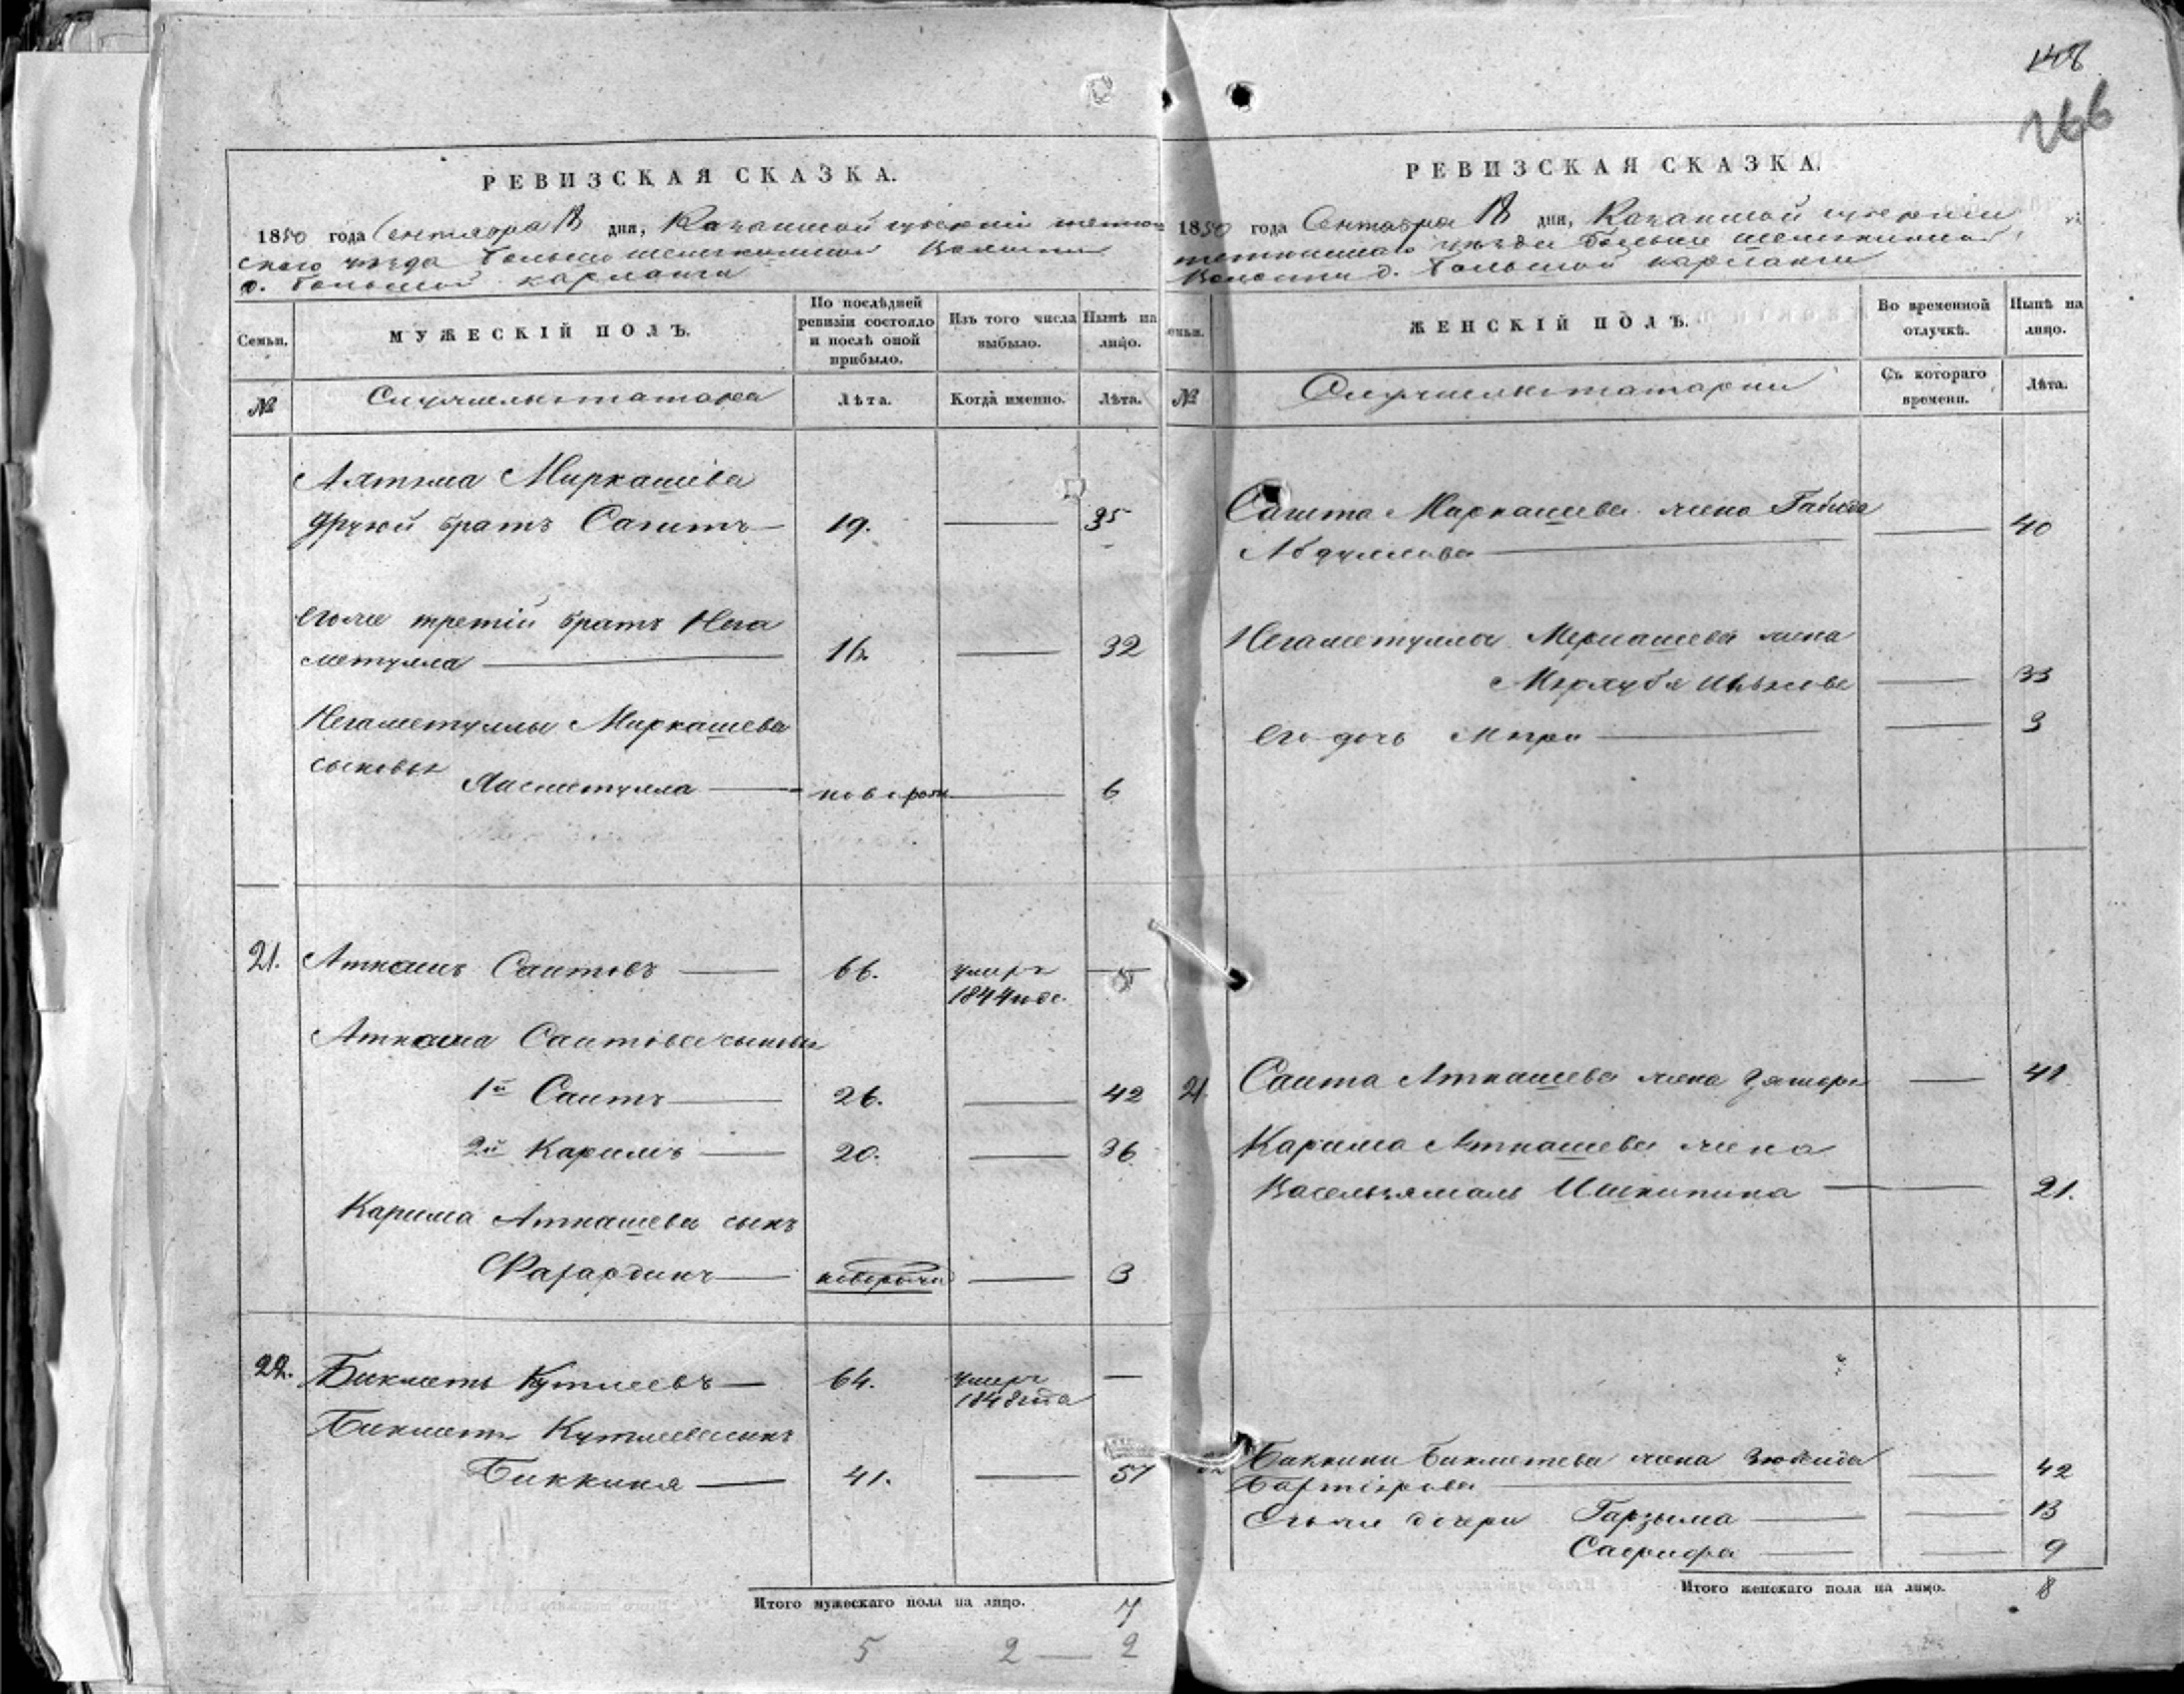 148
266
РЕВИЗСКАЯ СКАЗКА.
1850 года Сентября 18 дня, Казанской губернии тетюш
скаго уезда Больше шемякинской Волости
д. Большой карланги
Семьи. МУЖЕСКІЙ ПОЛЪ. По послѣдней ревизіи состояло и послѣ оной прибыло. Изъ того числа выбыло. Нынѣ на лицо.
№ Служилыя татара Лѣта. Когда именно. Лѣта.
Алтыша Миркашева
другой братъ Сагитъ 19. 35
Егоже третій братъ Нега
метулла 16. 32
Негаметуллы Миркашева
сыновья
новорож. 6
21. Аткашъ Саитовъ 66. умеръ
1844 года.
Аткаша Саитова сыновья
1й Саитъ 26. 42
2й Каримъ 20. 36
Карима Аткашева сынъ
новорожд 3
22. Бикметь Кутлеевъ 64. умеръ
1848 года
Бикметя Кутлеева сынъ
Биккиня 41. 57
Итого мужескаго пола на лицо. 7
5 2 — 2
РЕВИЗСКАЯ СКАЗКА.
1850 года Сентября 18 дня, Казанской губернии
тетюшскаго уезда Больше шемякинской
Волости д. Большой карланги
Семьи. ЖЕНСКІЙ ПОЛЪ. Во временной отлучкѣ. Нынѣ на лицо.
№ Служилыя татарки Съ котораго времени. Лѣта.
Сагита Миркашева жена Габида
Абдуллова 40
Негаметуллы Меркашева жена
33
Его дочь 3
21. Саита Аткашева жена 41
Карима Аткашева жена
Ишкинина 21.
22 Биккини Бикметева жена Зюбейда
42
Егоже дочери 13
Сафифа 9
Итого женскаго пола на лицо. 8